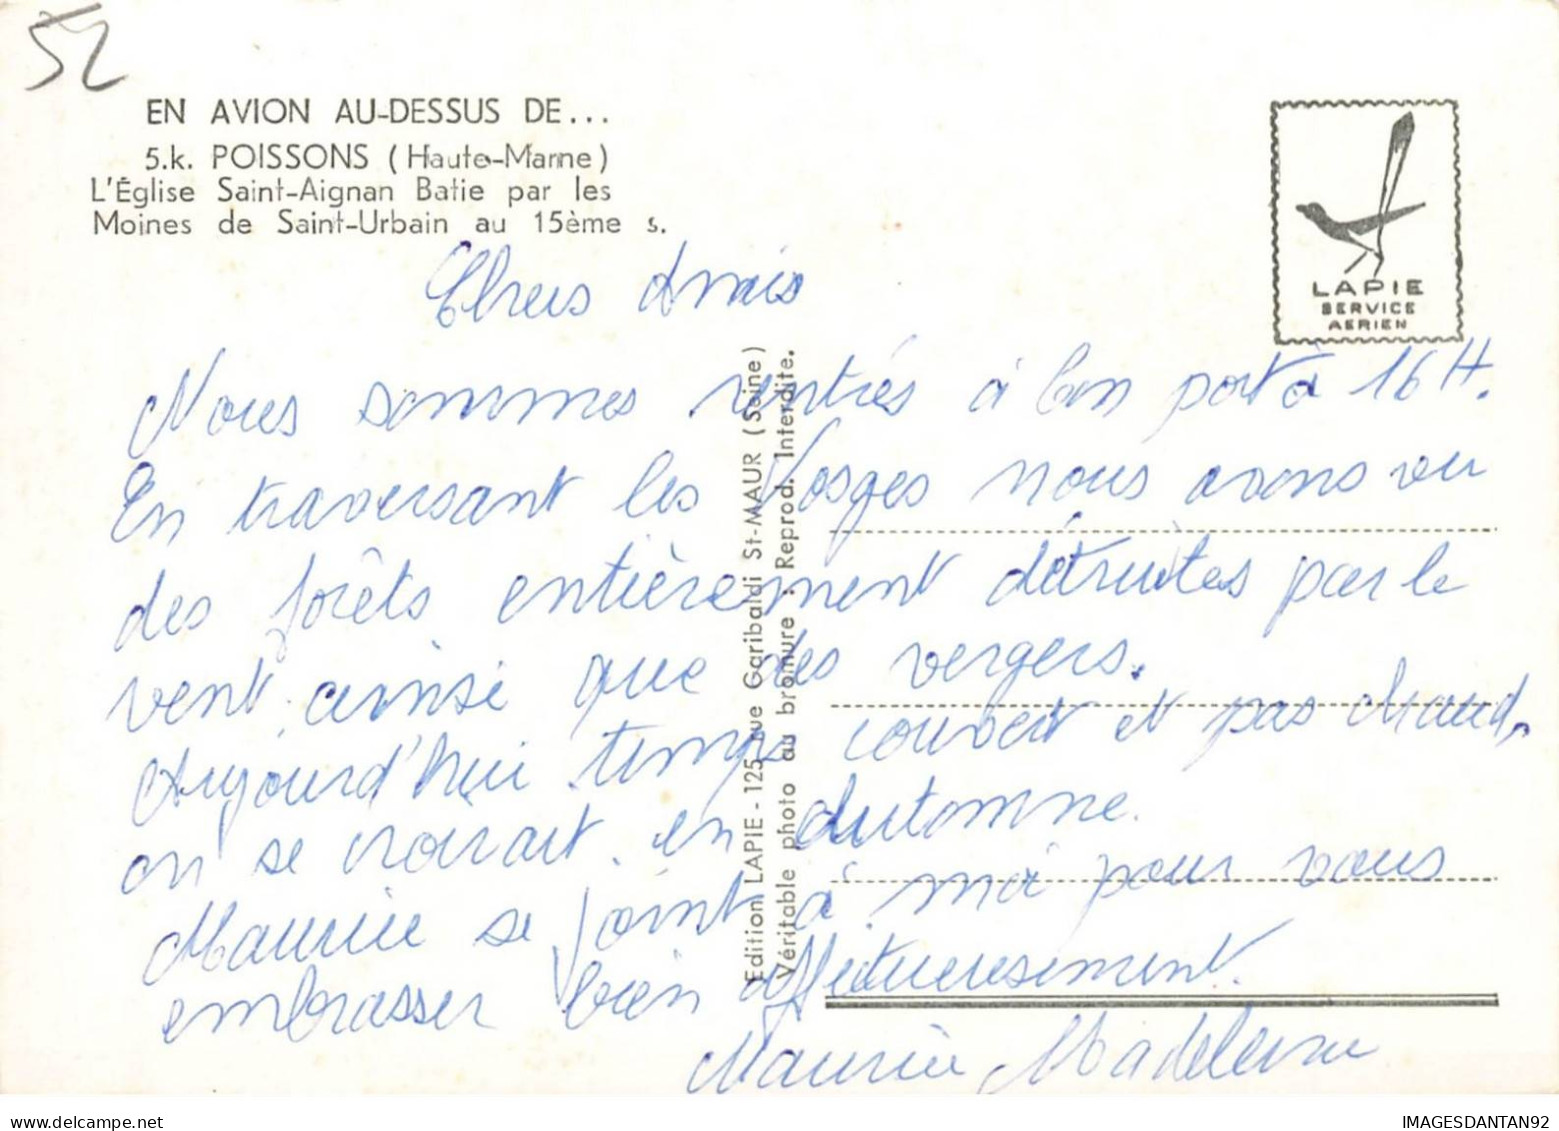 52
EN AVION AU-DESSUS DE...
5.k. POISSONS (Haute-Marne)
L'Église Saint-Aignan Batie par les
Moines de Saint-Urbain au 15ème s.
LAPIE
SERVICE
AERIEN
Chers Amis
Nous sommes rentrés à bon port à 16 H.
En traversant les Vosges nous avons vu
des forêts entièrement détruites par le
vent ainsi que des vergers.
Aujourd'hui temps couvert et pas chaud,
on se croirait en Automne.
Maurice se joint à moi pour vous
embrasser bien affectueusement.
Maurice Madeleine
Edition LAPIE - 125, rue Garibaldi St-MAUR (Seine)
Véritable photo au bromure : Reprod. Interdite.
IMAGESDANTAN92